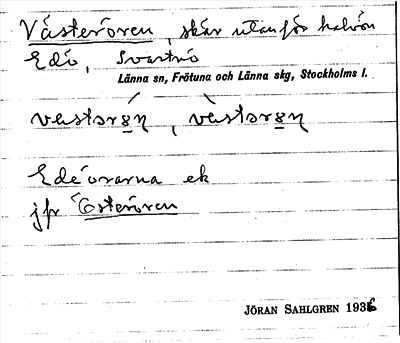 Västerören, skär utanför halvön
Edö, Svartnö
Länna sn, Frötuna och Länna skg, Stockholms l.
Edöorarna ek
jfr Österören
JÖRAN SAHLGREN 1936